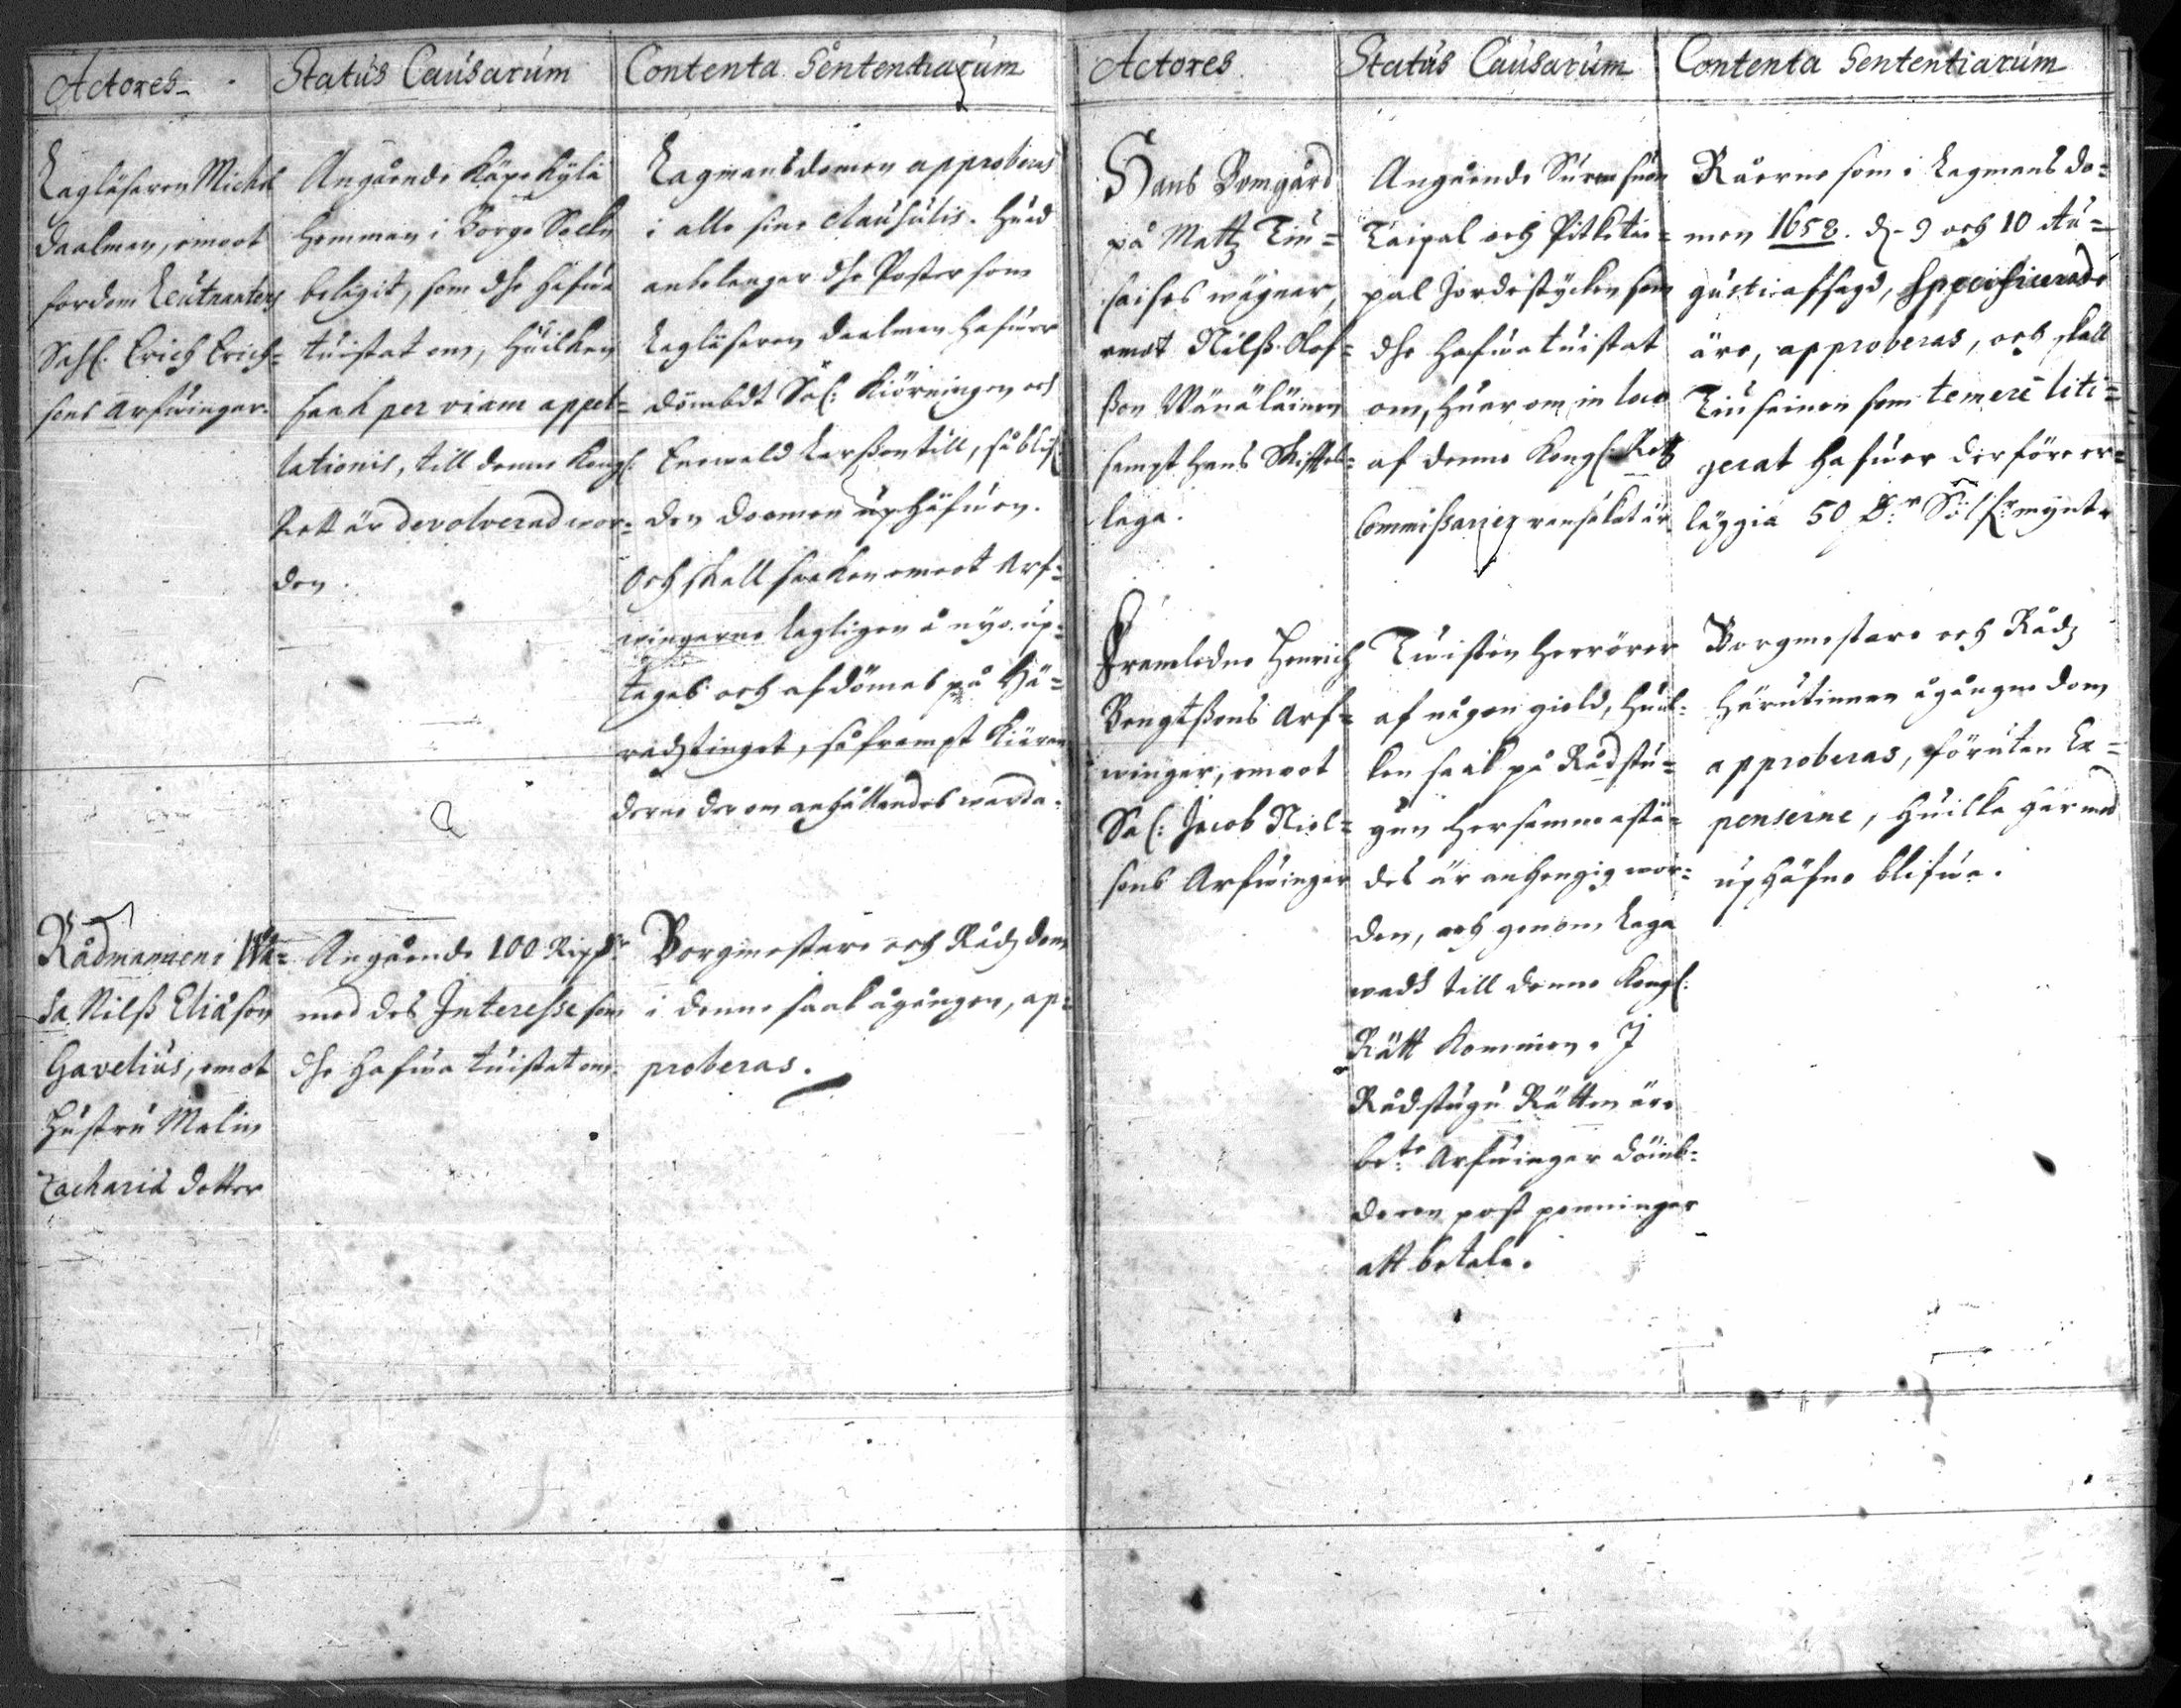 Actores
Status Causarum
Contenta Sententiarum
Lagläsaren Michel
Daalman, emoot
fordom Leutnanters
Sahl. Erich Erich=
sons Arfwingar.
Angående Käpe Kÿlä
Hemman i Borgo Sockn
beligit, som dhe hafwa
tuistat om, huilken
saak per viam appel=
lationis, till denne Kongl:
Rett är devolverad wor=
den.
Lagmansdomen approberas
i alle sine clausulis. Huad
anbelangar dhe Poster som
Lagläsaren Daalman hafuer
dömbdt Sal: Kiörningen och
Enewald Larsson till, så blif:
den doomen uphäfuen.
Och skall saaken emoot Arf=
wingarne lagligen å nyo up=
tagas och afdömas på Hä=
radztinget, såframpt Kiäran
derne der om anhållandes warda.
Rådmannens Wä=
da Nilss Eliæson
Gavelius, emot
Hustru Malin
Zachariæ dotter
Angående 100 Rixdr
med des Interesse som
dhe hafwa tuistat om.
Borgmestare och Rådz dom
i denne saak ågången, ap=
proberas.
Actores
Status Causarum
Contenta Sententiarum
Hans Bomgård
på Mattz Tiu=
saises wägnar,
emot Nilss Olof=
sson Wänäläinen
sampt Hans Skifftes=
laga.
Angående Suren suon
Taipal och Pitketai=
pal Jordestÿcken som
dhe hafwa tuistat
om, huar om in loco
af denne Kongl: Retz
Commissarier ransakat är
Råerne som i Lagmans do=
men 1658. d. 9 och 10 Au=
gusti afsagd, specificerade
äre, approberas, och skall
Tiusainen som temerè liti=
gerat hafuer derföre er=
läggia 50 Dr Sölfrmynt.
Framledne Henrich
Bengtssons Arf=
wingar, emoot
Sal: Jacob Niel=
sons Arfwingar
Tuisten herrörer
af någon gield, huil=
ken saak på Rådstu=
gun hersammastä=
des är anhengig wor=
den, och genom Laga
wadh till denne Kongl:
Rätt kommen. I
Rådstugu Rätten äre
be:te Arfwingar dömb=
de een post penningar
att betala.
Borgmestare och Rådz
härutinnan ågångne dom
approberas, förutan Ex=
penserne, huilka härmed
uphäfne blifwa.